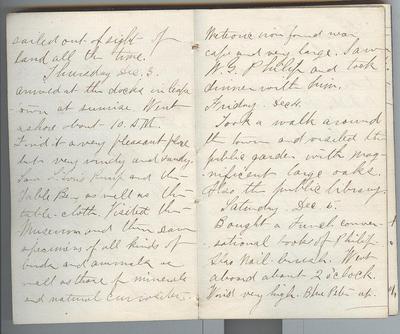 sailed out of sight of
land all the time.
Thursday Dec. 3.
arrived at the docks in Cape
town at sunrise. Went
ashore about 10. A.M.
Find it a very pleasant place
but very windy and sandy.
Saw Lion's Rump and the
Table Bay as well as the
table-cloth. Visited the
Museum and there saw
specimens of all kinds of
birds and animals as
well as those of minerals
and natural curiosities.
Meteoric iron found near
cape and very large. Saw
W. G. Philip and took
dinner with him.
Friday. Dec 4.
Took a walk around
the town and visited the
public garden with mag-
nificent large oaks
Also the public library.
Saturday Dec. 5.
Bought a French conver-
sational book of Philip.
Also Nail-brush. Went
aboard about 2 o'clock.
Wind very high. Blue Peter up.